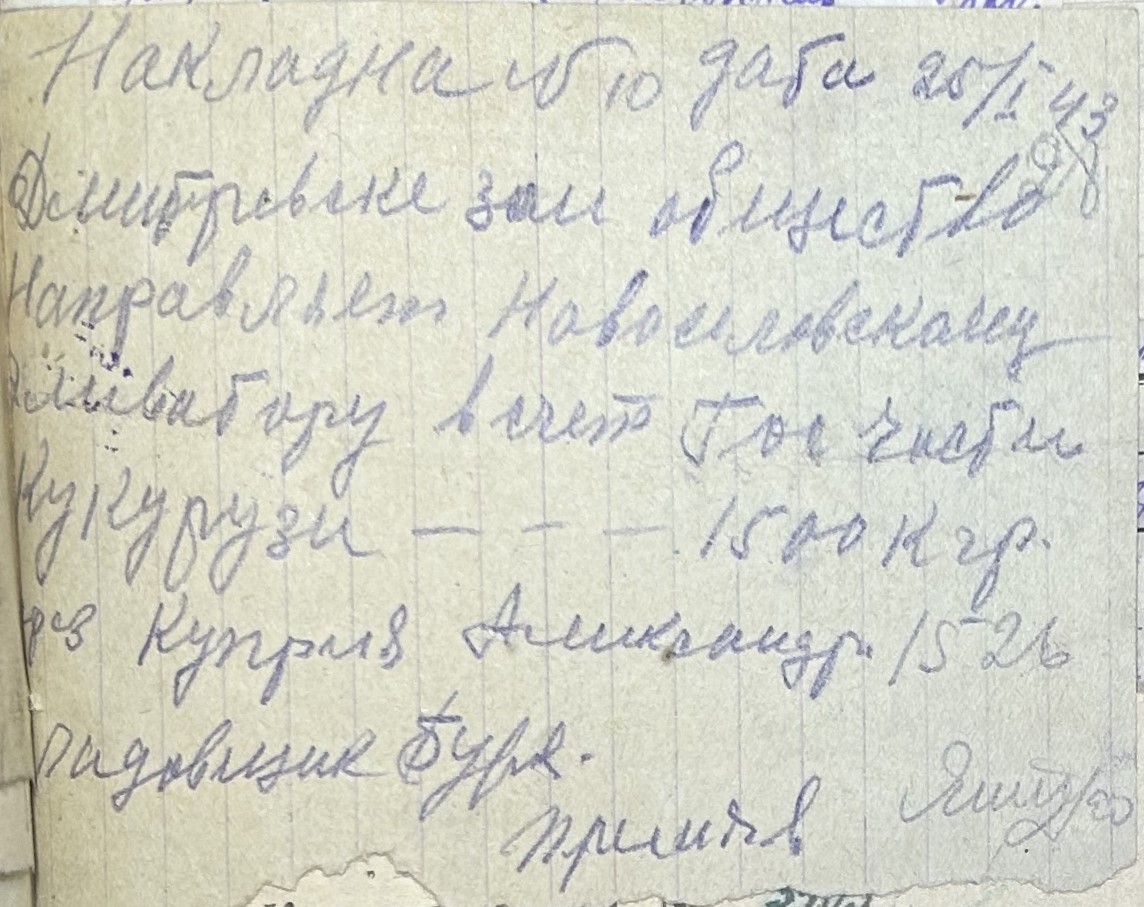 Накладна № 10 дата 25/I 43
Дмитревске зем общество
Направляет Новоселовскому
Эливатору в счет Гос части
Кукурузи — — — 1500 кгр.
Куприя Александр. 1526
ладовщик Буря.
Приняв